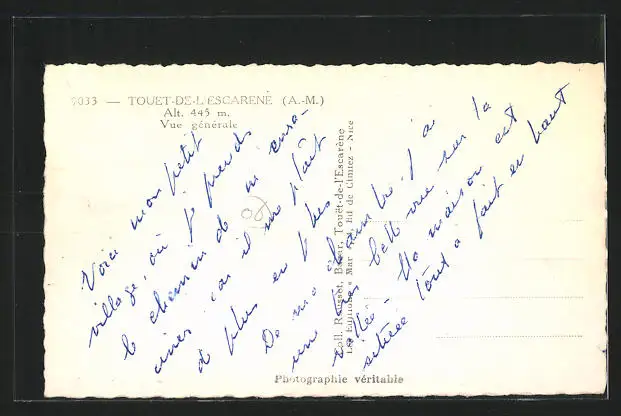 9033 — TOUET-DE-L'ESCARENE (A.-M.)
Alt. 445 m.
Vue générale
Voici mon petit
village, où je prends
le chemin de m'enra-
ciner car il me plaît
de plus en plus
De ma chambre j'ai
une très belle vue sur la
vallée - Ma maison est
située tout à fait en haut
Coll. Rousset, Bazar, Touët-de-l'Escarène
Mar Bd de Cimiez - Nice
Photographie véritable